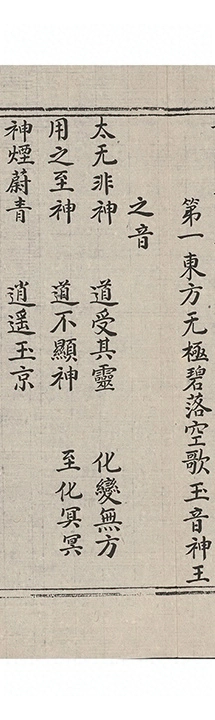 第一東方无極碧落空歌玉音神王
之音
太无非神 道受其靈 化變無方
用之至神 道不顯神 至化冥冥
神煙蔚青 逍遥玉京